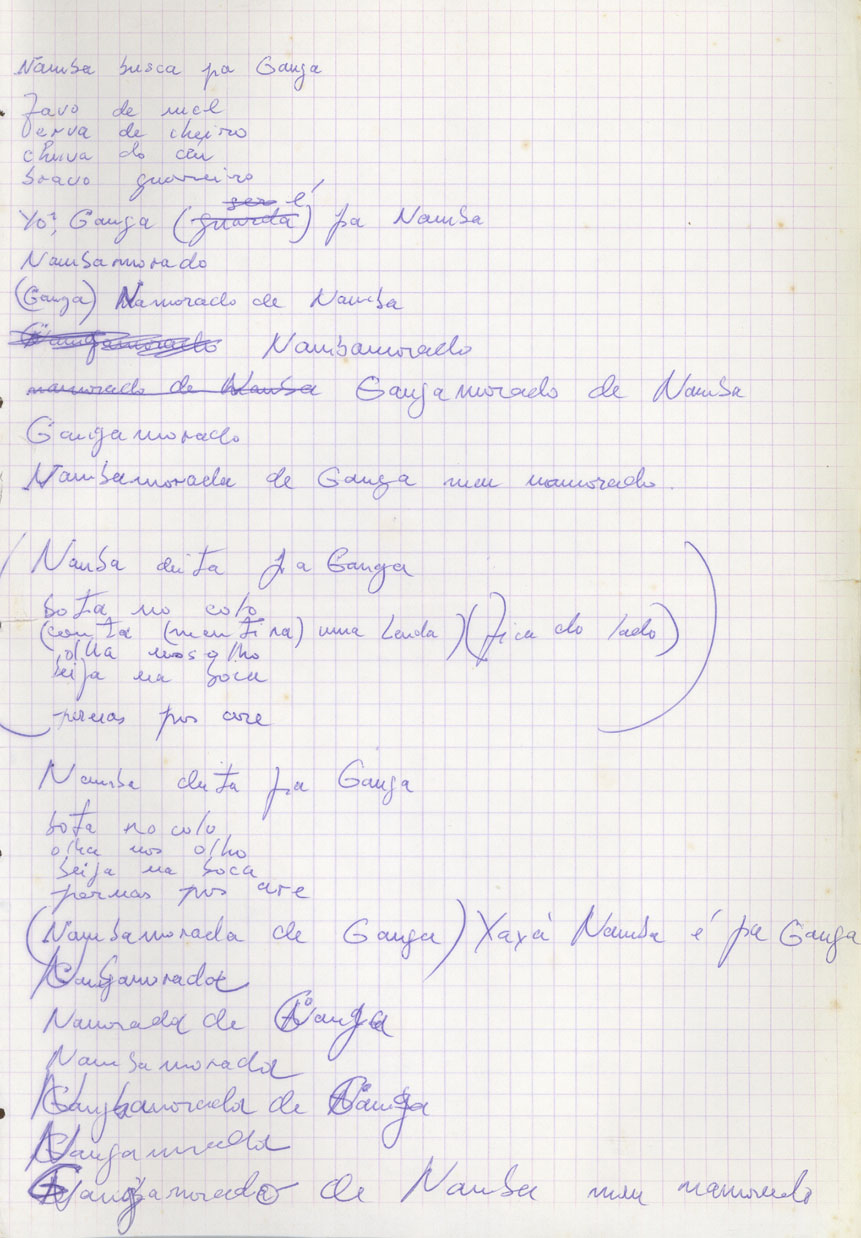 Namba busca pa Ganga
Favo de mel
Yerva de cheiro
chuva do céu
bravo guerreiro
ser é
Yoi, Ganga (guarda) pa Namba
Nambamorado
(Ganga) Namorado de Namba
Gangamorado Nambamorado
namorado de Namba Gangamorado de Namba
Gangamorado
Nambamorada de Ganga meu namorado.
Namba deita pa Ganga
bota no colo
(conta (mentira) uma lenda) (fica do lado)
olha nos olho
beija na boca
pernas pos are
Namba deita pa Ganga
bota no colo
olha nos olho
beija na boca
pernas pos are
(Nambamorada de Ganga) Xaxá Namba é pa Ganga
Gangamorada
Namorada de Ganga
Nambamorada
Gangamorada de Ganga
Gangamorada
Gangamorado de Namba meu namorado